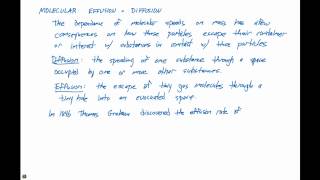 MOLECULAR EFFUSION + DIFFUSION
The dependence of molecular speeds on mass has a few
consequences on how those particles escape their container
or interact w/ substances in contact w/ those particles
Diffusion: the spreading of one substance through a space
occupied by one or more other substances.
Effusion: the escape of tiny gas molecules through a
tiny hole into an evacuated space.
In 1846 Thomas Graham discovered the effusion rate of